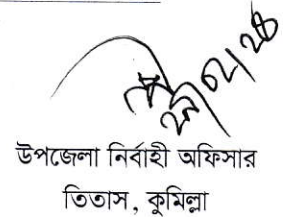 উপজেলা নির্বাহী অফিসার
তিতাস, কুমিল্লা